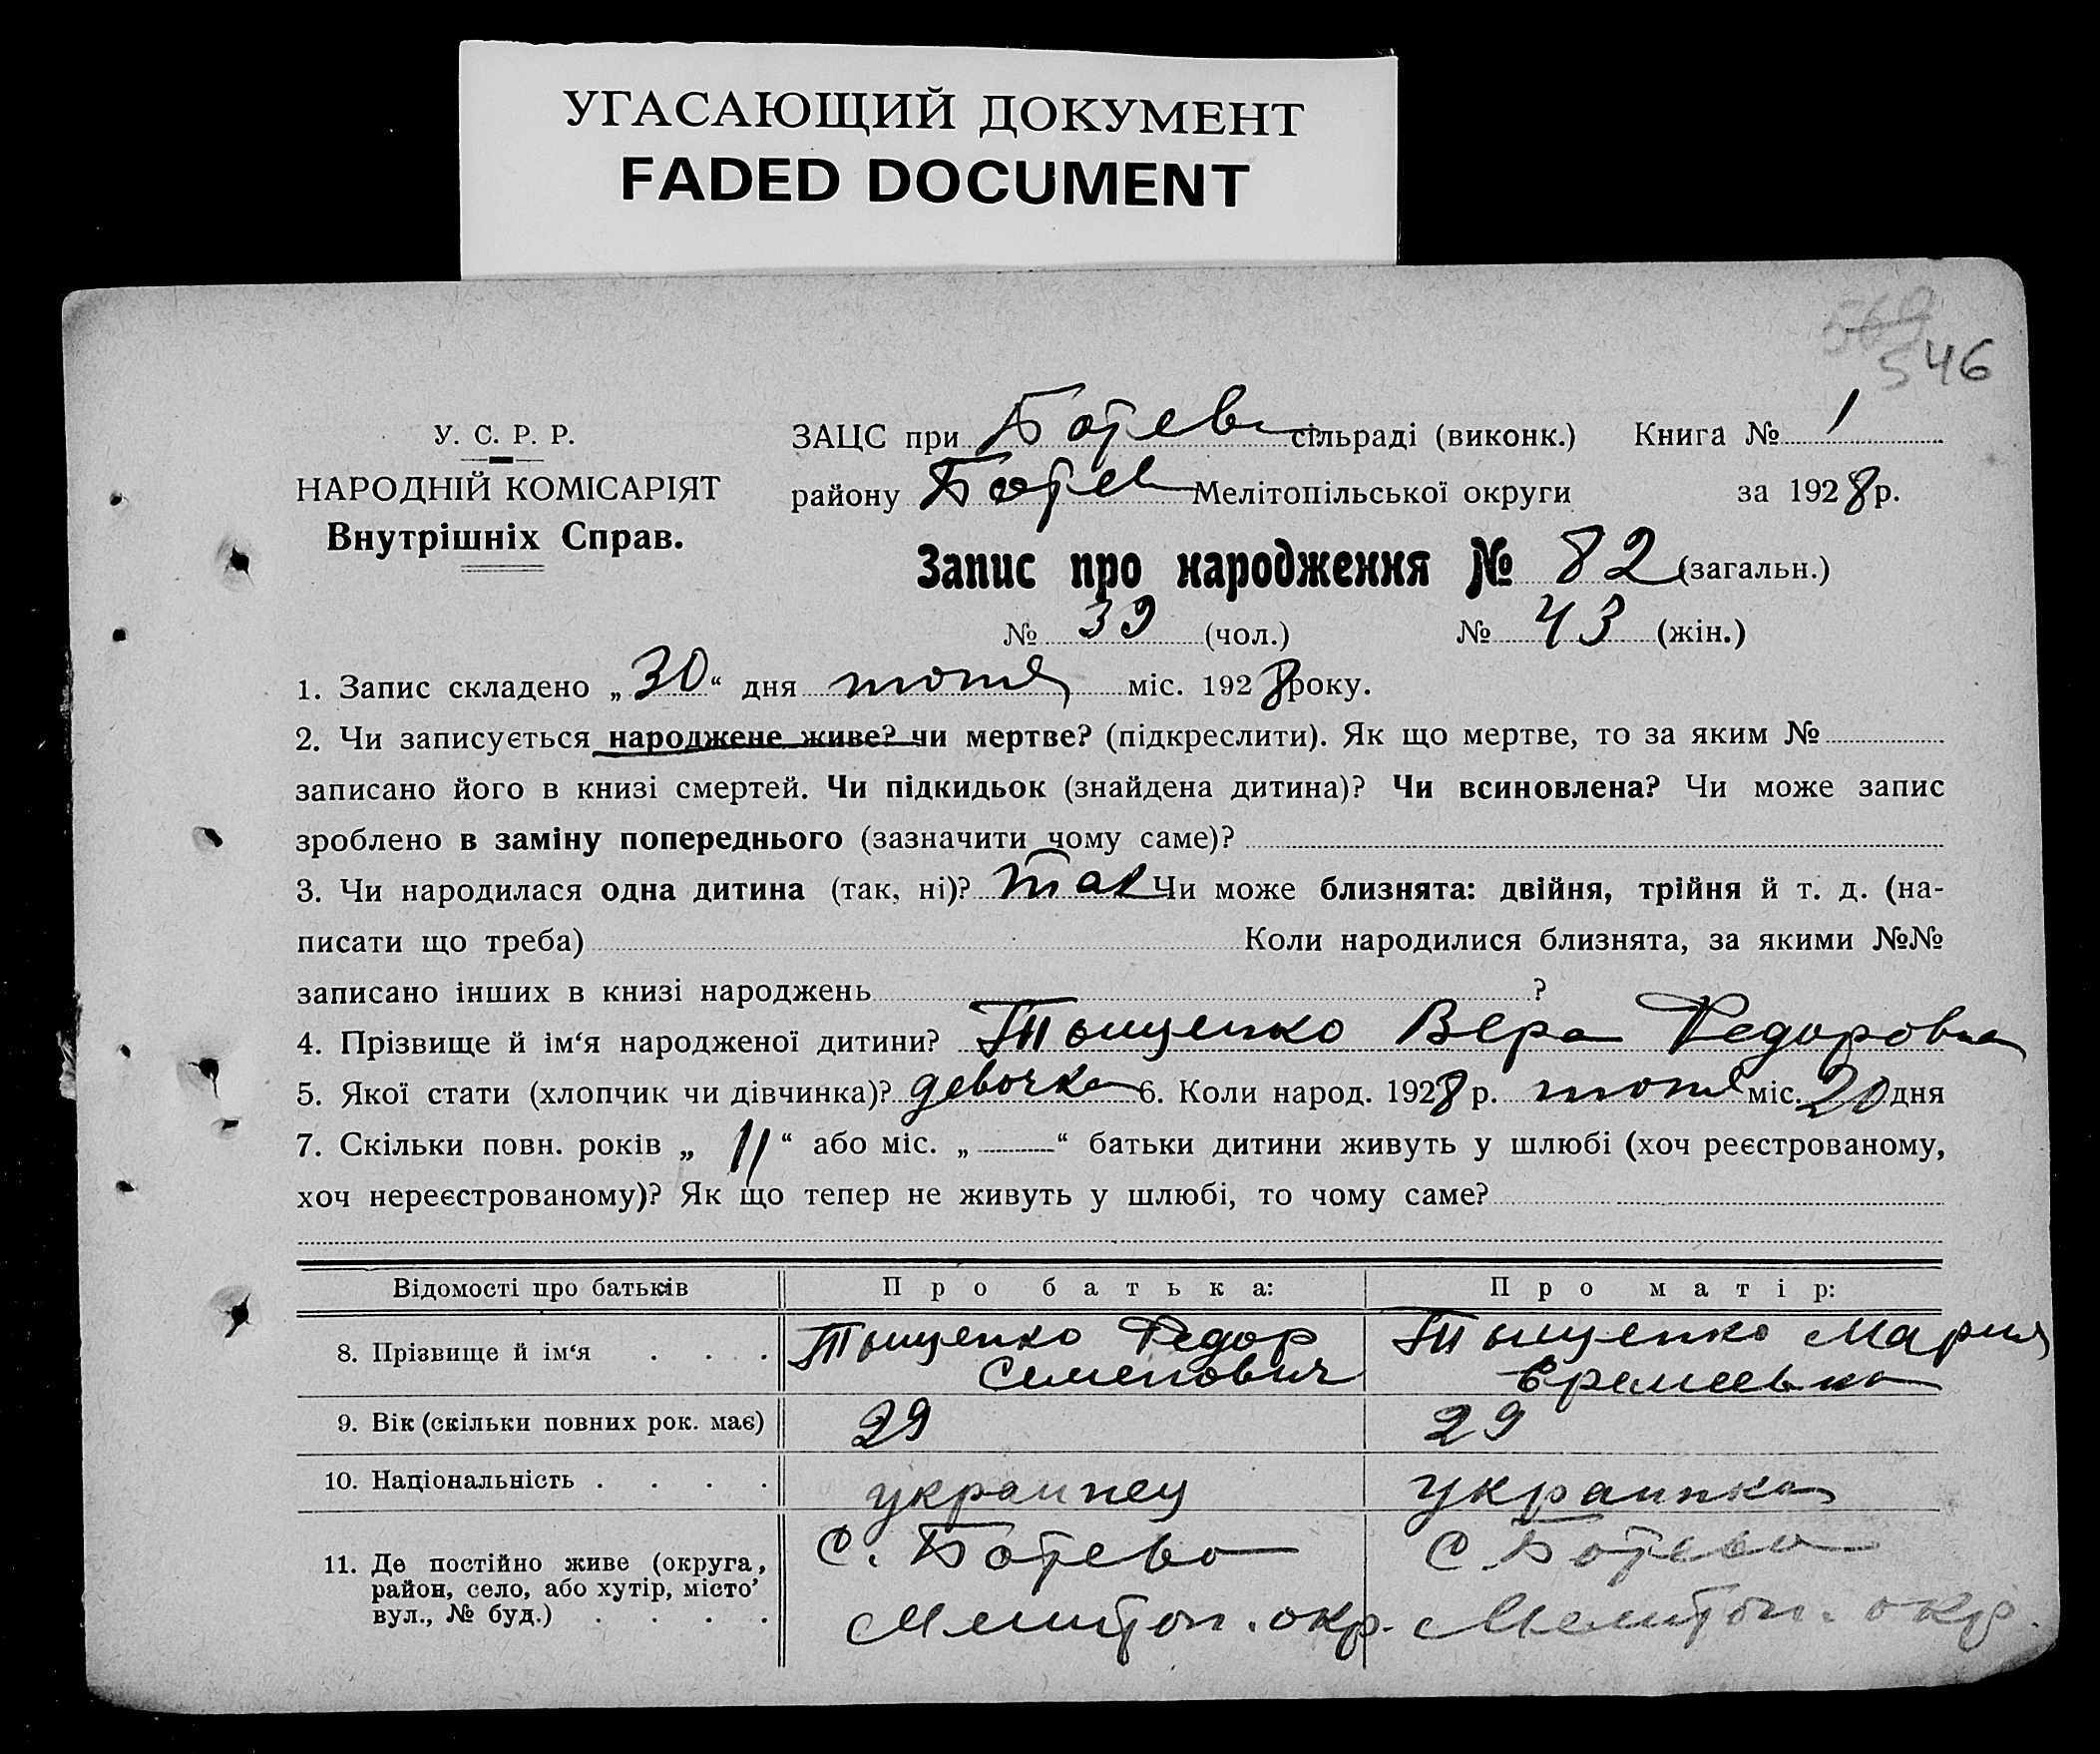 УГАСАЮЩИЙ ДОКУМЕНТ
FADED DOCUMENT
569
546
У. С. Р. Р.
НАРОДНІЙ КОМІСАРІЯТ
Внутрішніх Справ.
ЗАЦС при Ботев сільраді (виконк.) Книга № 1
району Ботев Мелітопільської округи за 1928 р.
Запис про народження № 82 (загальн.)
№ 39 (чол.) № 43 (жін.)
1. Запис складено „30“ дня июня міс. 1928 року.
2. Чи записується народжене живе? чи мертве? (підкреслити). Як що мертве, то за яким №
записано його в книзі смертей. Чи підкидьок (знайдена дитина)? Чи всиновлена? Чи може запис
зроблено в заміну попереднього (зазначити чому саме)?
3. Чи народилася одна дитина (так, ні)? так Чи може близнята: двійня, трійня й т. д. (на-
писати що треба) Коли народилися близнята, за якими №№
записано інших в книзі народжень ?
4. Прізвище й ім‘я народженої дитини? Тыщенко Вера Федоровна
5. Якої стати (хлопчик чи дівчинка)? девочка 6. Коли народ. 1928 р. июня міс. 20 дня
7. Скільки повн. років „11“ або міс. „ “ батьки дитини живуть у шлюбі (хоч реєстрованому,
хоч нереєстрованому)? Як що тепер не живуть у шлюбі, то чому саме?
Відомості про батьків Про батька: Про матір:
8. Прізвище й ім‘я . . . Тыщенко Федор Семенович Тыщенко Мария Еремеевна
9. Вік (скільки повних рок. має) 29 29
10. Національність . . . . украинец украинка
11. Де постійно живе (округа, район, село, або хутір, місто’ вул., № буд.) . . . . С. Ботево Мелитоп. окр. С Ботево Мелитоп. окр.